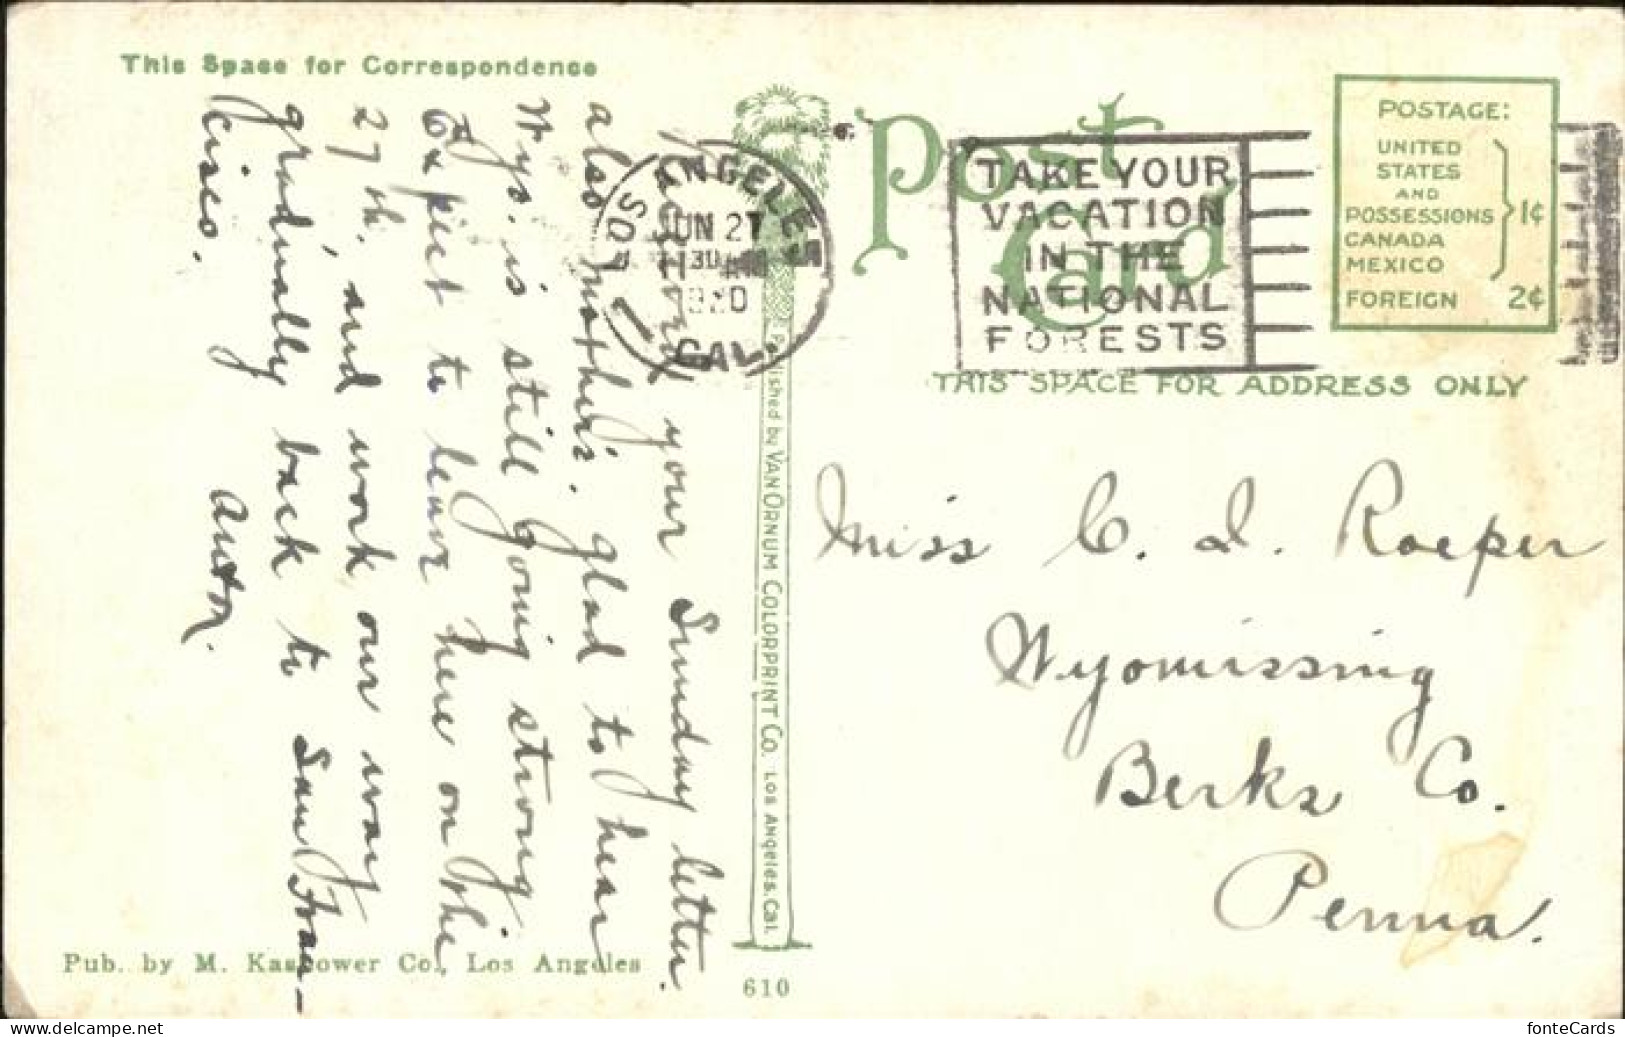 This Space for Correspondence
Received your Sunday letter
also mother's. glad to hear
Wyo. is still going strong
Expect to leave here on the
27th, and work our way
gradually back to San Fran-
cisco.
Anton.
Pub. by M. Kashower Co., Los Angeles
Published by VAN ORNUM COLORPRINT CO. LOS ANGELES. CAL.
610
Post Card
LOS ANGELES
JUN 27
1920
CAL.
TAKE YOUR
VACATION
IN THE
NATIONAL
FORESTS
POSTAGE:
UNITED
STATES
AND
POSSESSIONS 1¢
CANADA
MEXICO
FOREIGN 2¢
THIS SPACE FOR ADDRESS ONLY
Miss C. I. Roeper
Wyomissing
Berks Co.
Penna.
Newest upload.delcampe.net
fonteCards